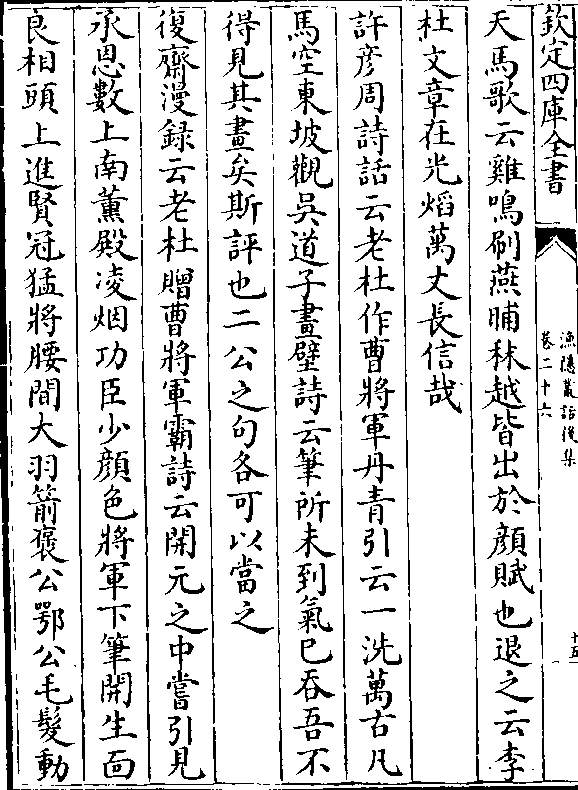 欽定四庫全書
漁隱叢話後集
卷二十六
十五
天馬歌云雞鳴刷燕晡秣越皆出於顔賦也退之云李
杜文章在光熖萬丈長信哉
許彦周詩話云老杜作曹將軍丹青引云一洗萬古凡
馬空東坡觀吳道子畫壁詩云筆所未到氣已吞吾不
得見其畫矣斯評也二公之句各可以當之
復齋漫録云老杜贈曹將軍霸詩云開元之中嘗引見
承恩數上南薫殿凌烟功臣少顔色將軍下筆開生面
良相頭上進賢冠猛將腰間大羽箭褒公鄂公毛髮動